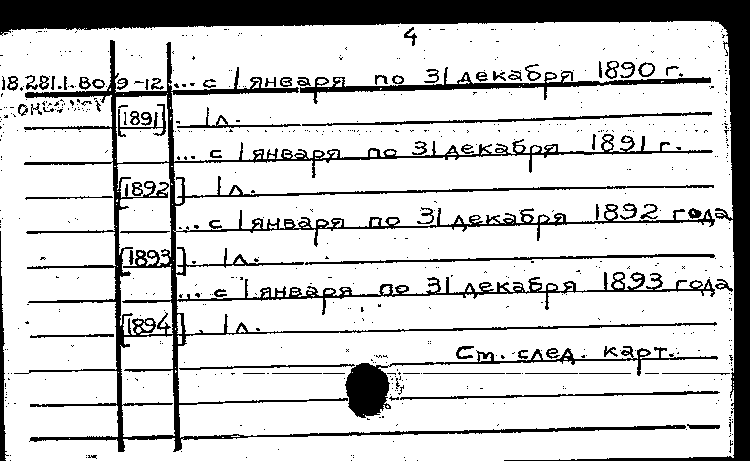 4
18.281.1.80/9-12 ... с 1 января по 31 декабря 1890 г.
[1891]. 1 л.
... с 1 января по 31 декабря 1891 г.
[1892]. 1 л.
... с 1 января по 31 декабря 1892 года
[1893]. 1 л.
... с 1 января по 31 декабря 1893 года
[1894]. 1 л.
См. след. карт.